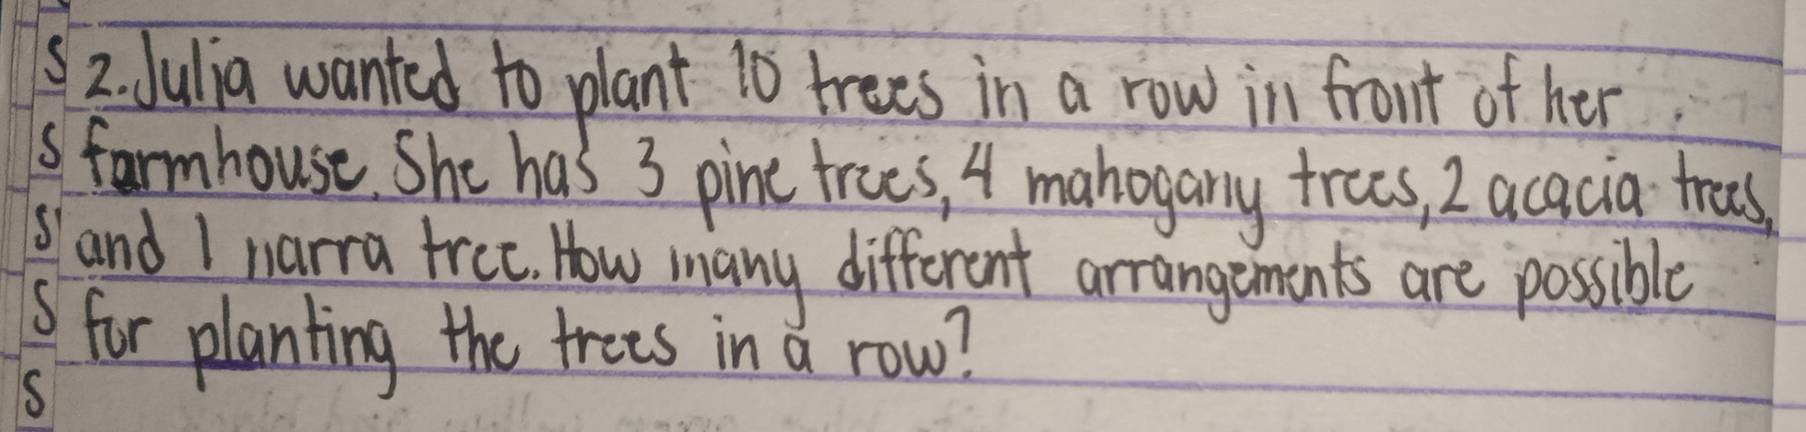 S 2. Julia wanted to plant 10 trees in a row in front of her
S farmhouse. She has 3 pine trees, 4 mahogany trees, 2 acacia trees,
S and 1 narra tree. How many different arrangements are possible
S for planting the trees in a row?
S